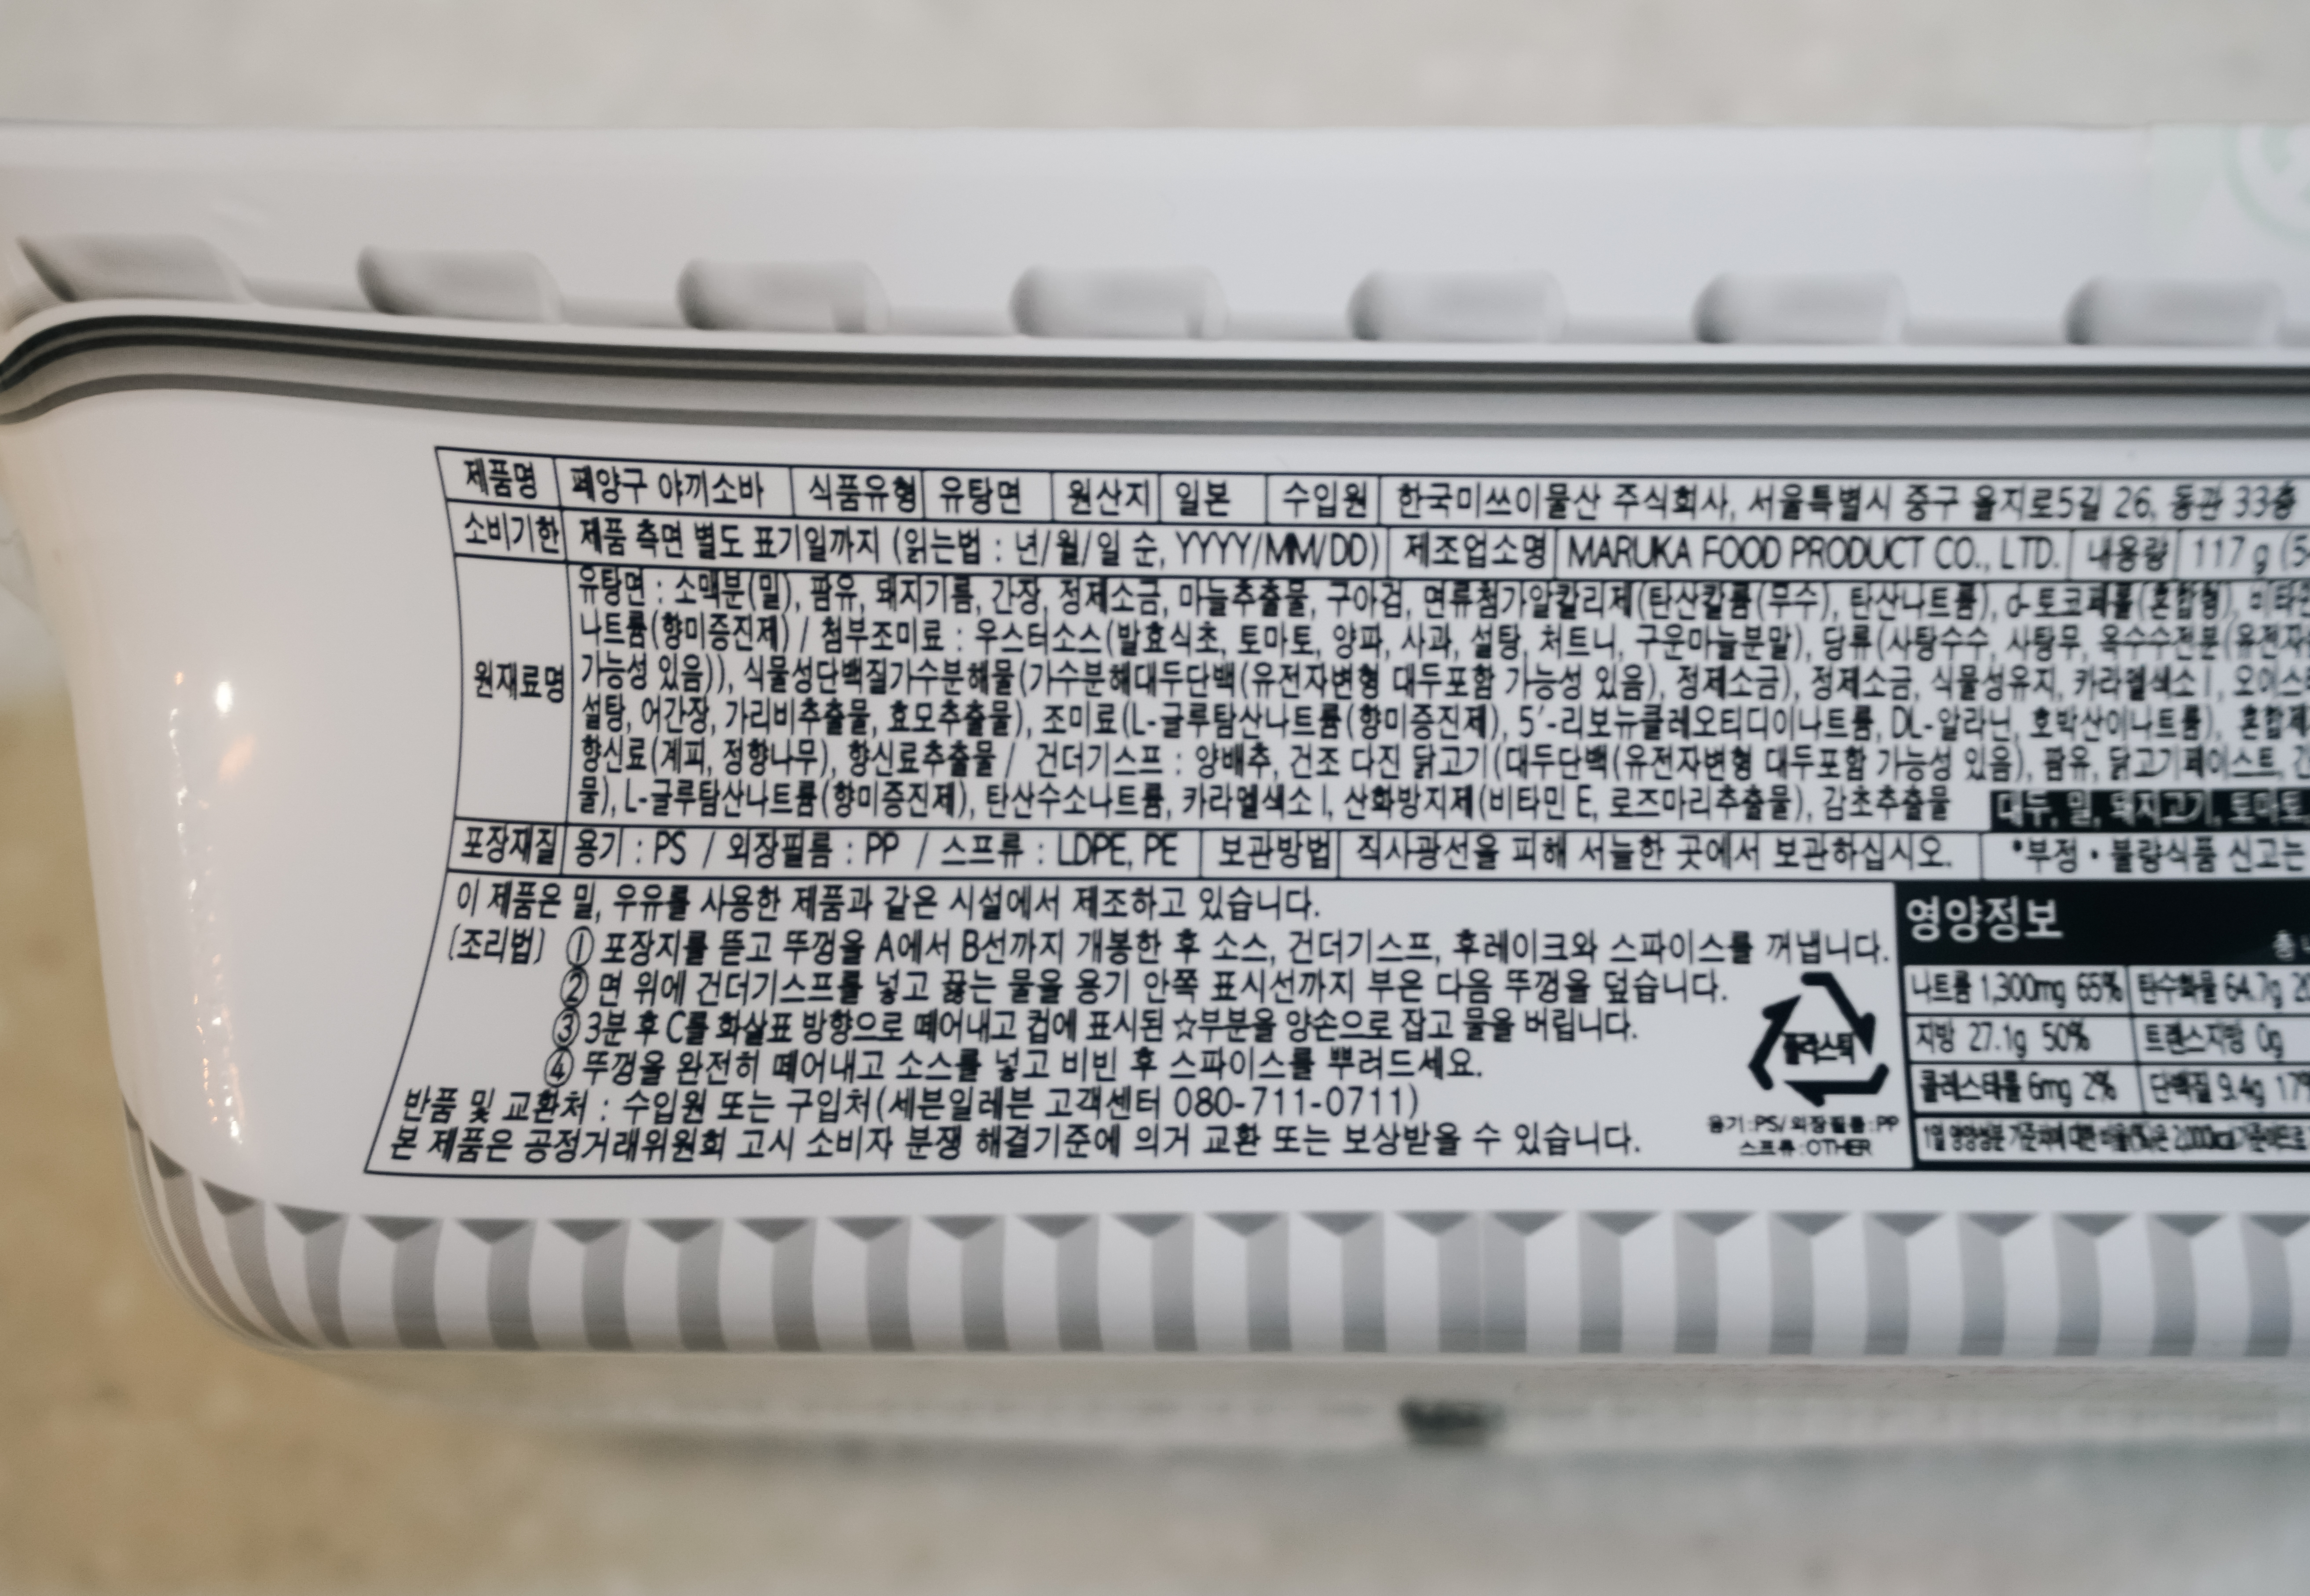 제품명 페양구 야끼소바 식품유형 유탕면 원산지 일본 수입원 한국미쓰이물산 주식회사, 서울특별시 중구 을지로5길 26, 동관 33층
소비기한 제품 측면 별도 표기일까지 (읽는법 : 년/월/일 순, YYYY/MM/DD) 제조업소명 MARUKA FOOD PRODUCT CO., LTD. 내용량 117 g
원재료명
유탕면 : 소맥분(밀), 팜유, 돼지기름, 간장, 정제소금, 마늘추출물, 구아검, 면류첨가알칼리제(탄산칼륨(무수), 탄산나트륨), d-토코페롤(혼합형),
나트륨(향미증진제) / 첨부조미료 : 우스터소스(발효식초, 토마토, 양파, 사과, 설탕, 처트니, 구운마늘분말), 당류(사탕수수, 사탕무, 옥수수전분
가능성 있음)), 식물성단백질가수분해물(가수분해대두단백(유전자변형 대두포함 가능성 있음), 정제소금), 정제소금, 식물성유지, 카라멜색소Ⅰ,
설탕, 어간장, 가리비추출물, 효모추출물), 조미료(L-글루탐산나트륨(향미증진제), 5'-리보뉴클레오티디이나트륨, DL-알라닌, 호박산이나트륨),
향신료(계피, 정향나무), 향신료추출물 / 건더기스프 : 양배추, 건조 다진 닭고기(대두단백(유전자변형 대두포함 가능성 있음), 팜유, 닭고기페이스트,
물), L-글루탐산나트륨(향미증진제), 탄산수소나트륨, 카라멜색소Ⅰ, 산화방지제(비타민 E, 로즈마리추출물), 감초추출물 대두, 밀, 돼지고기, 토마토,
포장재질 용기 : PS / 외장필름 : PP / 스프류 : LDPE, PE 보관방법 직사광선을 피해 서늘한 곳에서 보관하십시오. *부정·불량식품 신고는
이 제품은 밀, 우유를 사용한 제품과 같은 시설에서 제조하고 있습니다.
〔조리법〕 ① 포장지를 뜯고 뚜껑을 A에서 B선까지 개봉한 후 소스, 건더기스프, 후레이크와 스파이스를 꺼냅니다.
② 면 위에 건더기스프를 넣고 끓는 물을 용기 안쪽 표시선까지 부은 다음 뚜껑을 덮습니다.
③ 3분 후 C를 화살표 방향으로 떼어내고 컵에 표시된 ☆부분을 양손으로 잡고 물을 버립니다.
④ 뚜껑을 완전히 떼어내고 소스를 넣고 비빈 후 스파이스를 뿌려드세요.
반품 및 교환처 : 수입원 또는 구입처(세븐일레븐 고객센터 080-711-0711)
본 제품은 공정거래위원회 고시 소비자 분쟁 해결기준에 의거 교환 또는 보상받을 수 있습니다.
플라스틱
용기:PS/외장필름:PP
스프류:OTHER
영양정보
나트륨 1,300mg 65% 탄수화물 64.7g
지방 27.1g 50% 트랜스지방 0g
콜레스테롤 6mg 2% 단백질 9.4g
1일 영양성분 기준치에 대한 비율(%)은 2,000kcal 기준이므로